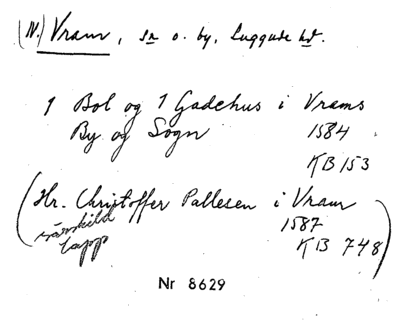 (N.) Vram, sn o. by, Luggude hd.
1 Bol og 1 Gadehus i Vrams
By og Sogn 1584
KB 153
(Hr. Christoffer Pallesen i Vram
särskild 1587
lapp KB 748)
Nr 8629